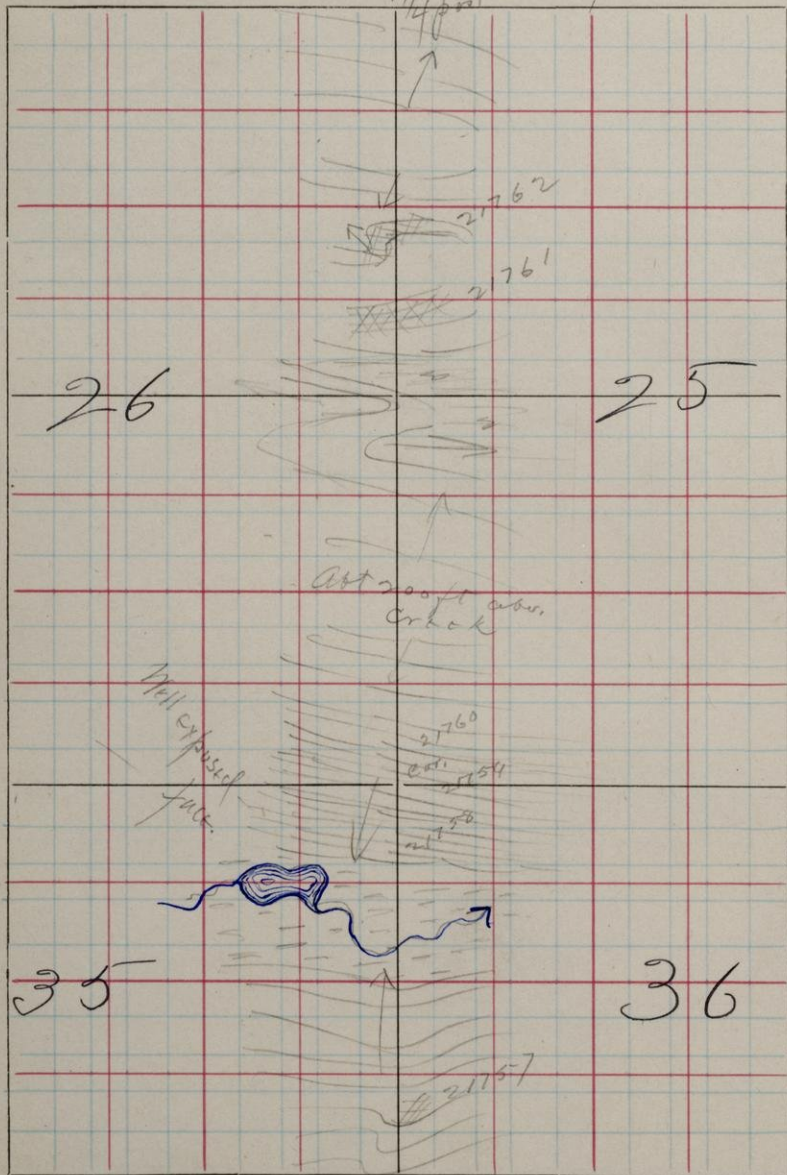 1/4 post
21762
21761
26
25
Abt 200 ft abv.
creek
Well exposed
face.
21760
cor.
21759
21758
35
36
21757